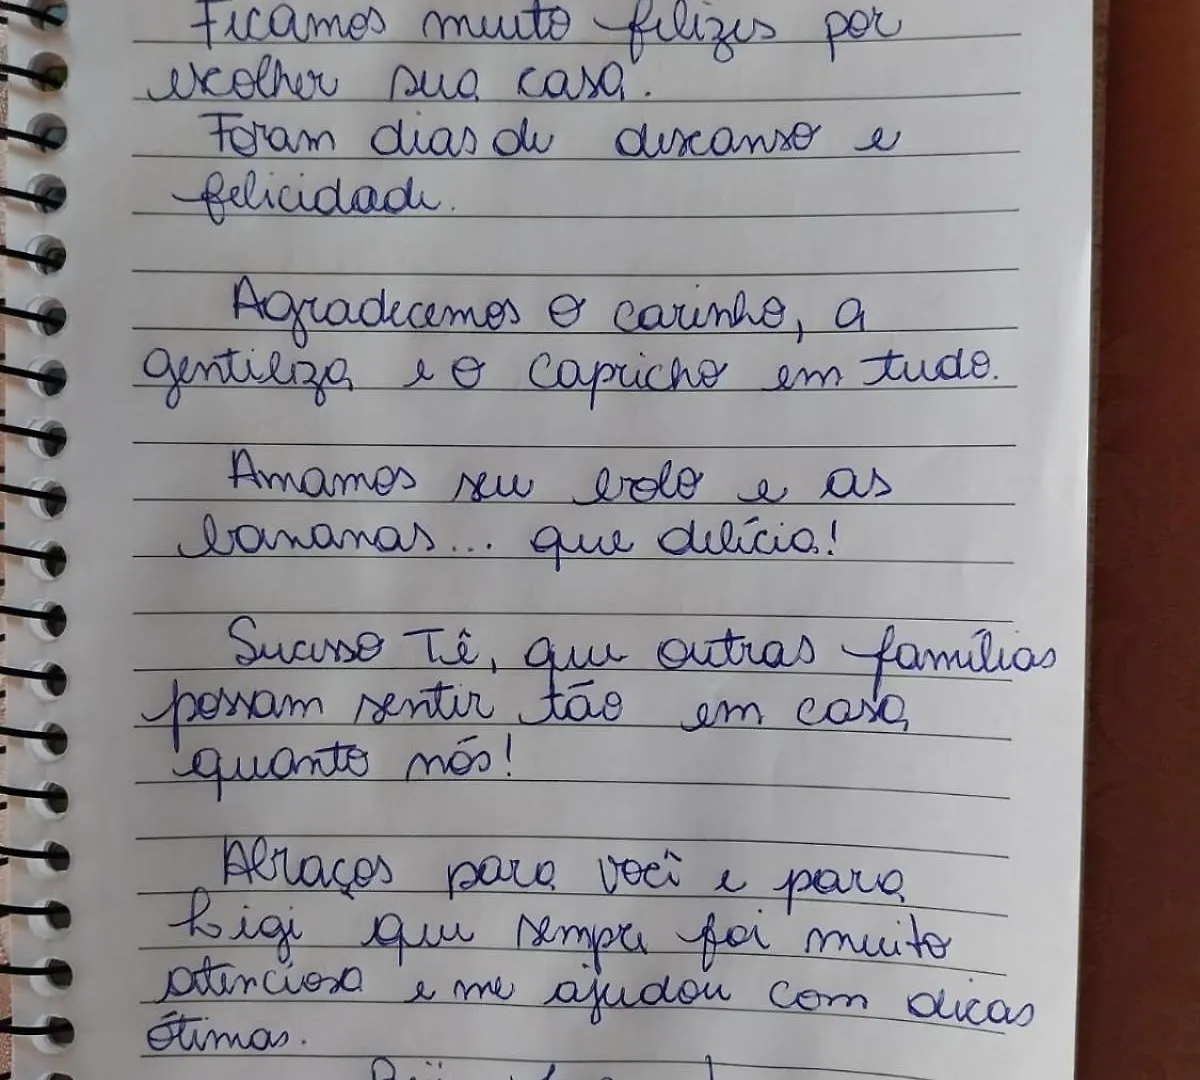 Ficamos muito felizes por
escolher sua casa.
Foram dias de descanso e
felicidade.
Agradecemos o carinho, a
gentileza e o capricho em tudo.
Amamos seu bolo e as
bananas... que delícia!
Sucesso Tê, que outras famílias
possam sentir tão em casa
quanto nós!
Abraços para você e para
Ligi que sempre foi muito
atenciosa e me ajudou com dicas
ótimas.